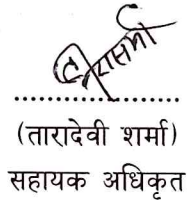 ..............................
(तारादेवी शर्मा)
सहायक अधिकृत